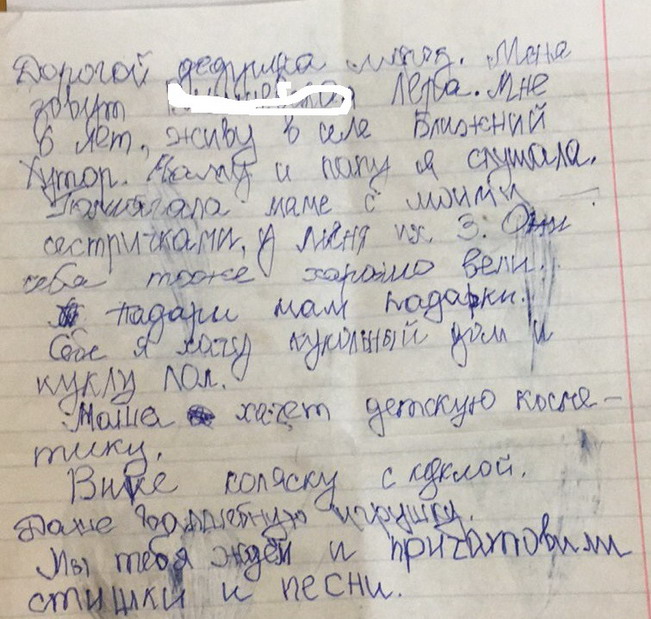 Дорогой дедушка мароз. Меня
зовут Лера. Мне
6 лет, живу в селе Ближний
Хутор. Маму и папу я слушала.
Помагала маме с моими
сестричками, у меня их 3. Они
себа тоже харошо вели.
падари нам падарки.
Себе я хачу кукольный дом и
куклу лол.
Маша хачет детскую косме-
тику.
Вике коляску с куклой.
Даше игрушку.
Мы тебя ждём и пригатовили
стишки и песни.